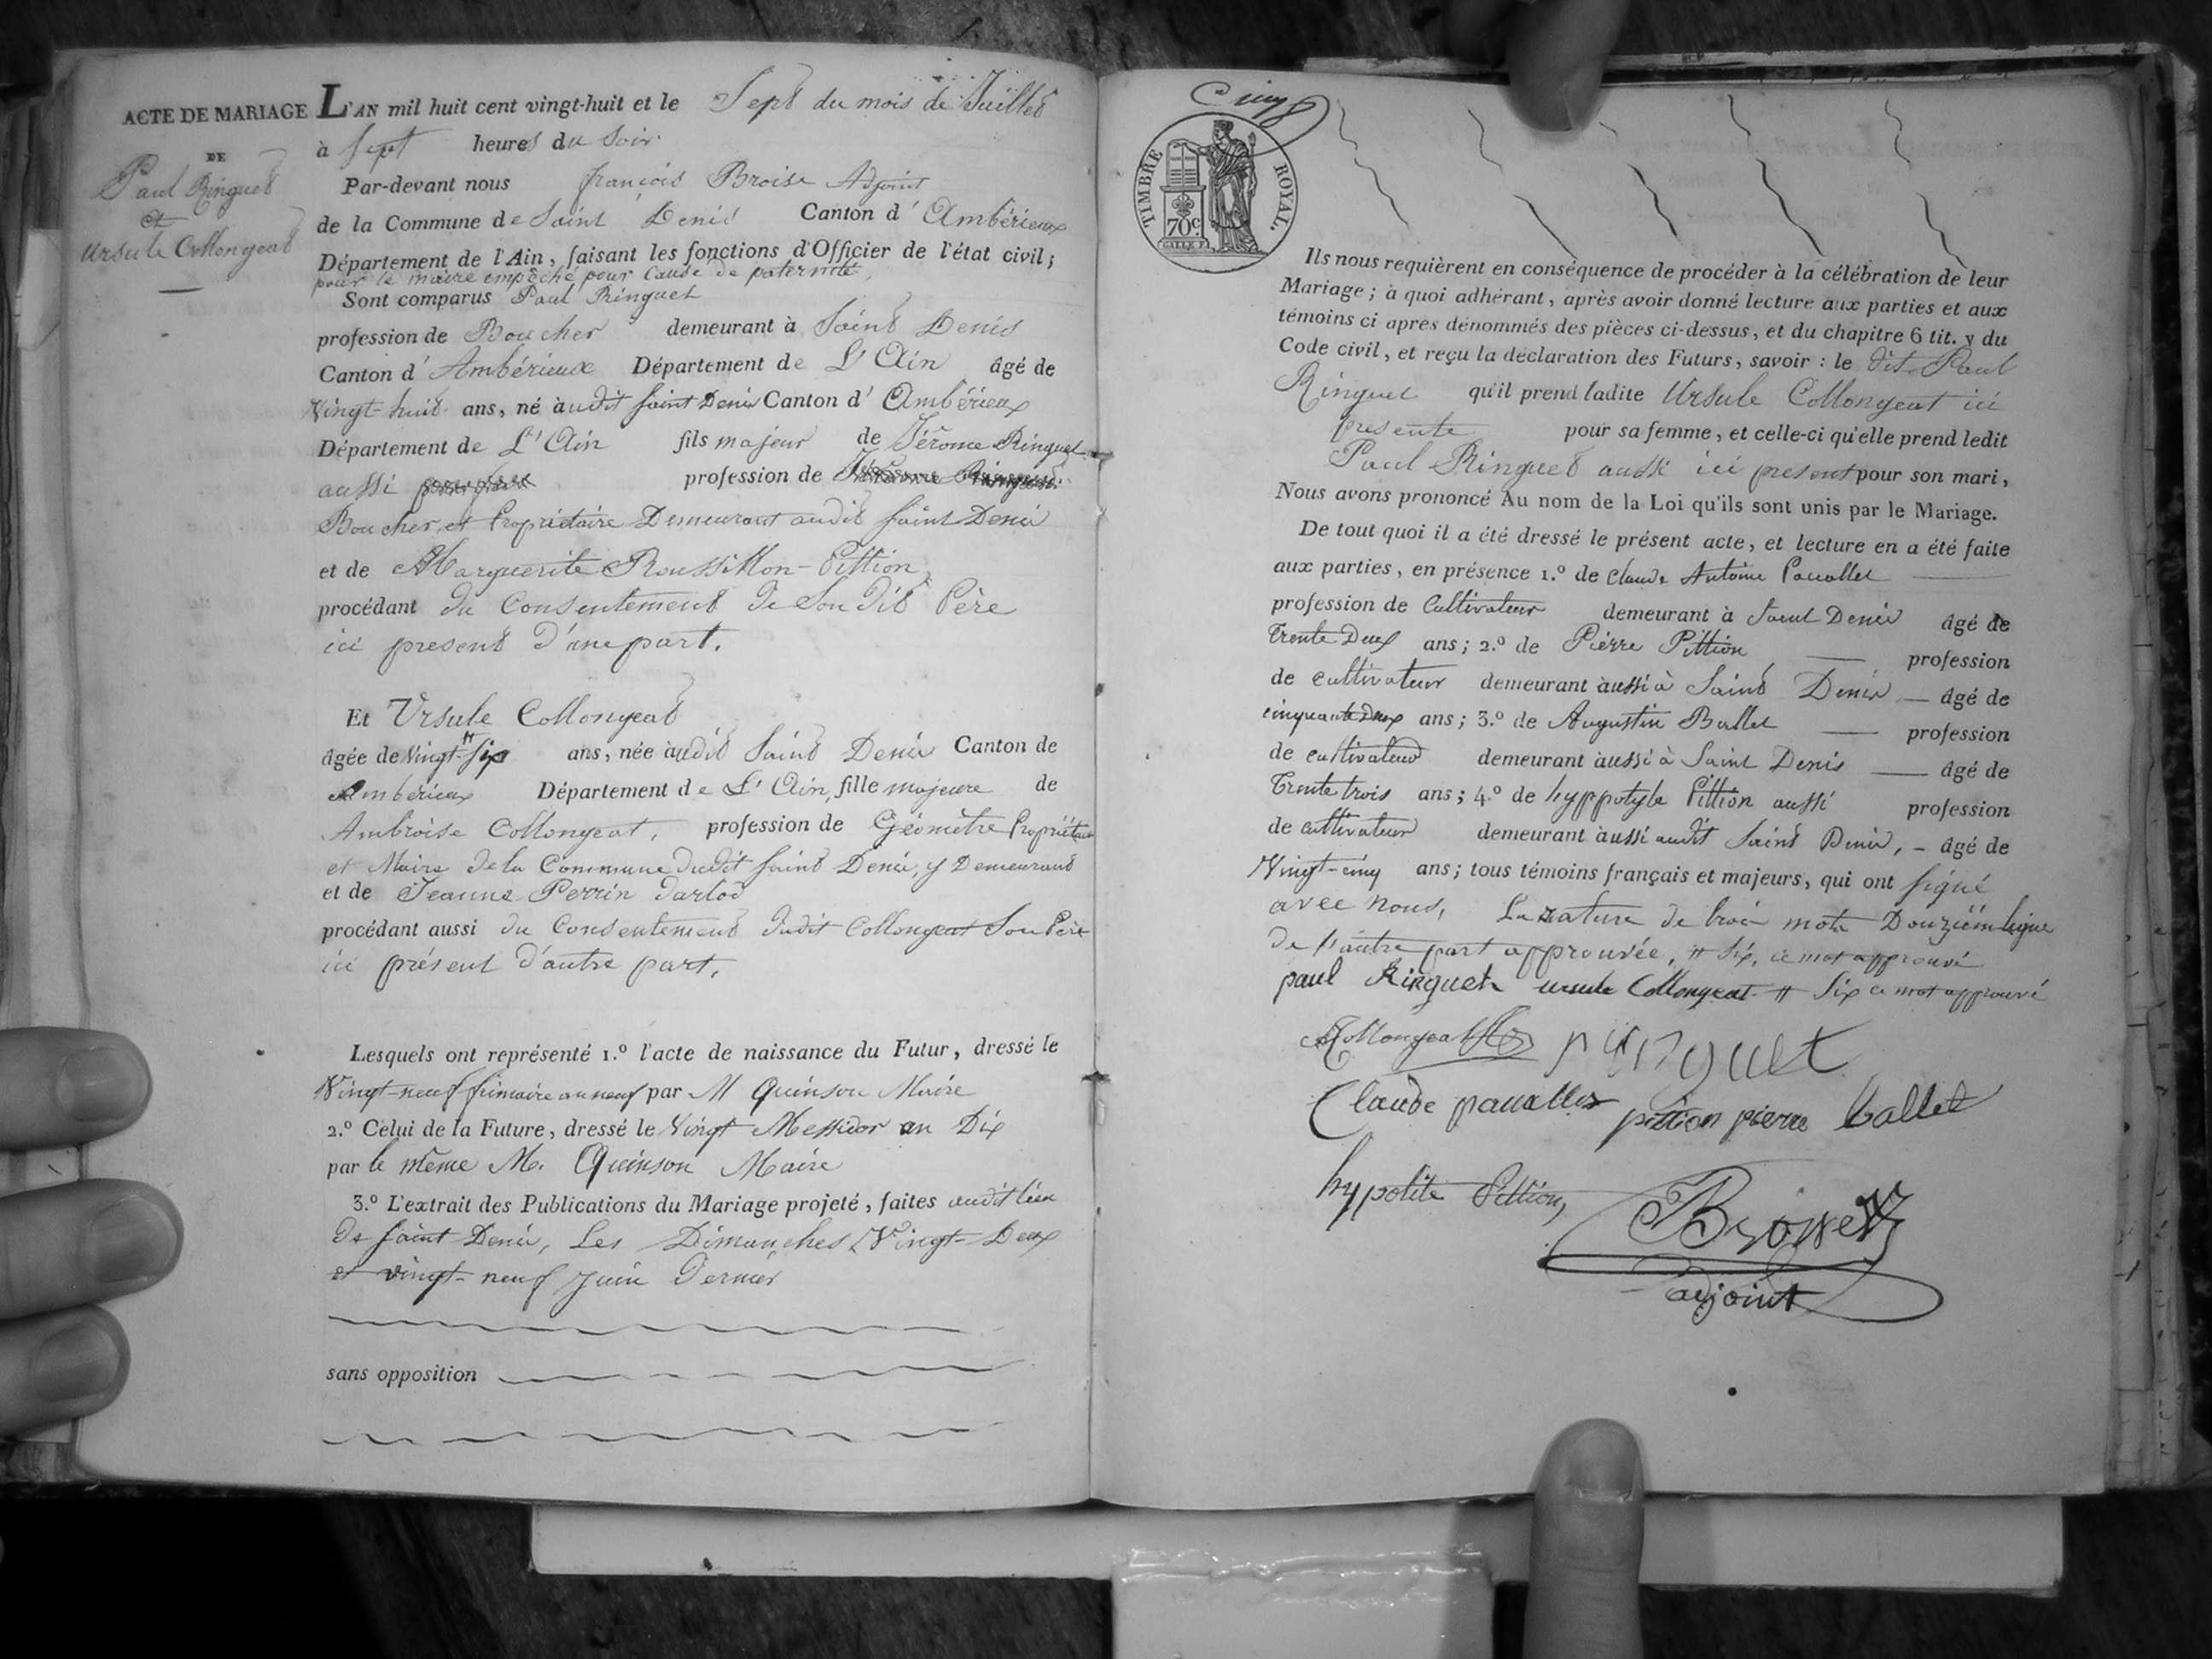 ACTE DE MARIAGE
DE
Paul Ringuet
et
Ursule Collongeat
L'AN mil huit cent vingt-huit et le Sept du mois de Juillet
à sept heures du Soir
Par-devant nous françois Broise Adjoint
de la Commune de Saint Denis Canton d'Ambérieux
Département de l'Ain, faisant les fonctions d'Officier de l'état civil;
pour le maire empêché pour cause de paternité,
Sont comparus Paul Ringuet
profession de Boucher demeurant à Saint Denis
Canton d'Ambérieux Département de L'Ain âgé de
Vingt-huit ans, né audit Saint Denis Canton d'Ambérieux
Département de L'Ain fils majeur de Jérome Ringuet
aussi profession de
Boucher et Propriétaire Demeurant audit Saint Denis
et de Marguerite Roussillon-Pittion
procédant du Consentement de Son dit Père
ici present d'une part.
Et Ursule Collongeat
âgée de Vingt-six ans, née audit Saint Denis Canton de
Ambérieux Département de L'Ain, fille majeure de
Ambroise Collongeat, profession de Géomètre Propriétaire
et Maire de la Commune dudit Saint Denis, y Demeurant
et de Jeanne Perrin darlod
procédant aussi du Consentement dudit Collongeat Son Père
ici présent d'autre part.
Lesquels ont représenté 1.º l'acte de naissance du Futur, dressé le
Vingt-neuf frimaire an neuf par M Quinson Maire
2.º Celui de la Future, dressé le Vingt Messidor an Dix
par le même M. Quinson Maire
3.º L'extrait des Publications du Mariage projeté, faites audit lieu
de Saint Denis, Les Dimanches Vingt-Deux
et vingt-neuf juin Dernier
sans opposition
Cinq
TIMBRE ROYAL.
70c.
Ils nous requièrent en conséquence de procéder à la célébration de leur
Mariage; à quoi adhérant, après avoir donné lecture aux parties et aux
témoins ci après dénommés des pièces ci-dessus, et du chapitre 6 tit. v du
Code civil, et reçu la déclaration des Futurs, savoir: le dit Paul
Ringuet qu'il prend ladite Ursule Collongeat ici
presente pour sa femme, et celle-ci qu'elle prend ledit
Paul Ringuet aussi ici present pour son mari,
Nous avons prononcé Au nom de la Loi qu'ils sont unis par le Mariage.
De tout quoi il a été dressé le présent acte, et lecture en a été faite
aux parties, en présence 1.º de Claude Antoine Pauallet
profession de Cultivateur demeurant à Saint Denis âgé de
Trente Deux ans; 2.º de Pierre Pittion profession
de cultivateur demeurant aussi à Saint Denis âgé de
cinquante Deux ans; 3.º de Augustin Ballet profession
de cultivateur demeurant aussi à Saint Denis âgé de
Trente trois ans; 4.º de hyppolyte Pittion aussi profession
de cultivateur demeurant aussi audit Saint Denis, âgé de
Vingt-cinq ans; tous témoins français et majeurs, qui ont signé
avec nous, La rature de trois mots Douzième ligne
de l'autre part approuvée, # six, ce mot approuvé
paul Ringuet ursule Collongeat # Six ce mot approuvé
Collongeat ringuet
Claude pauallet pittion pierre ballet
hypolite Pittion,
Broisse
adjoint